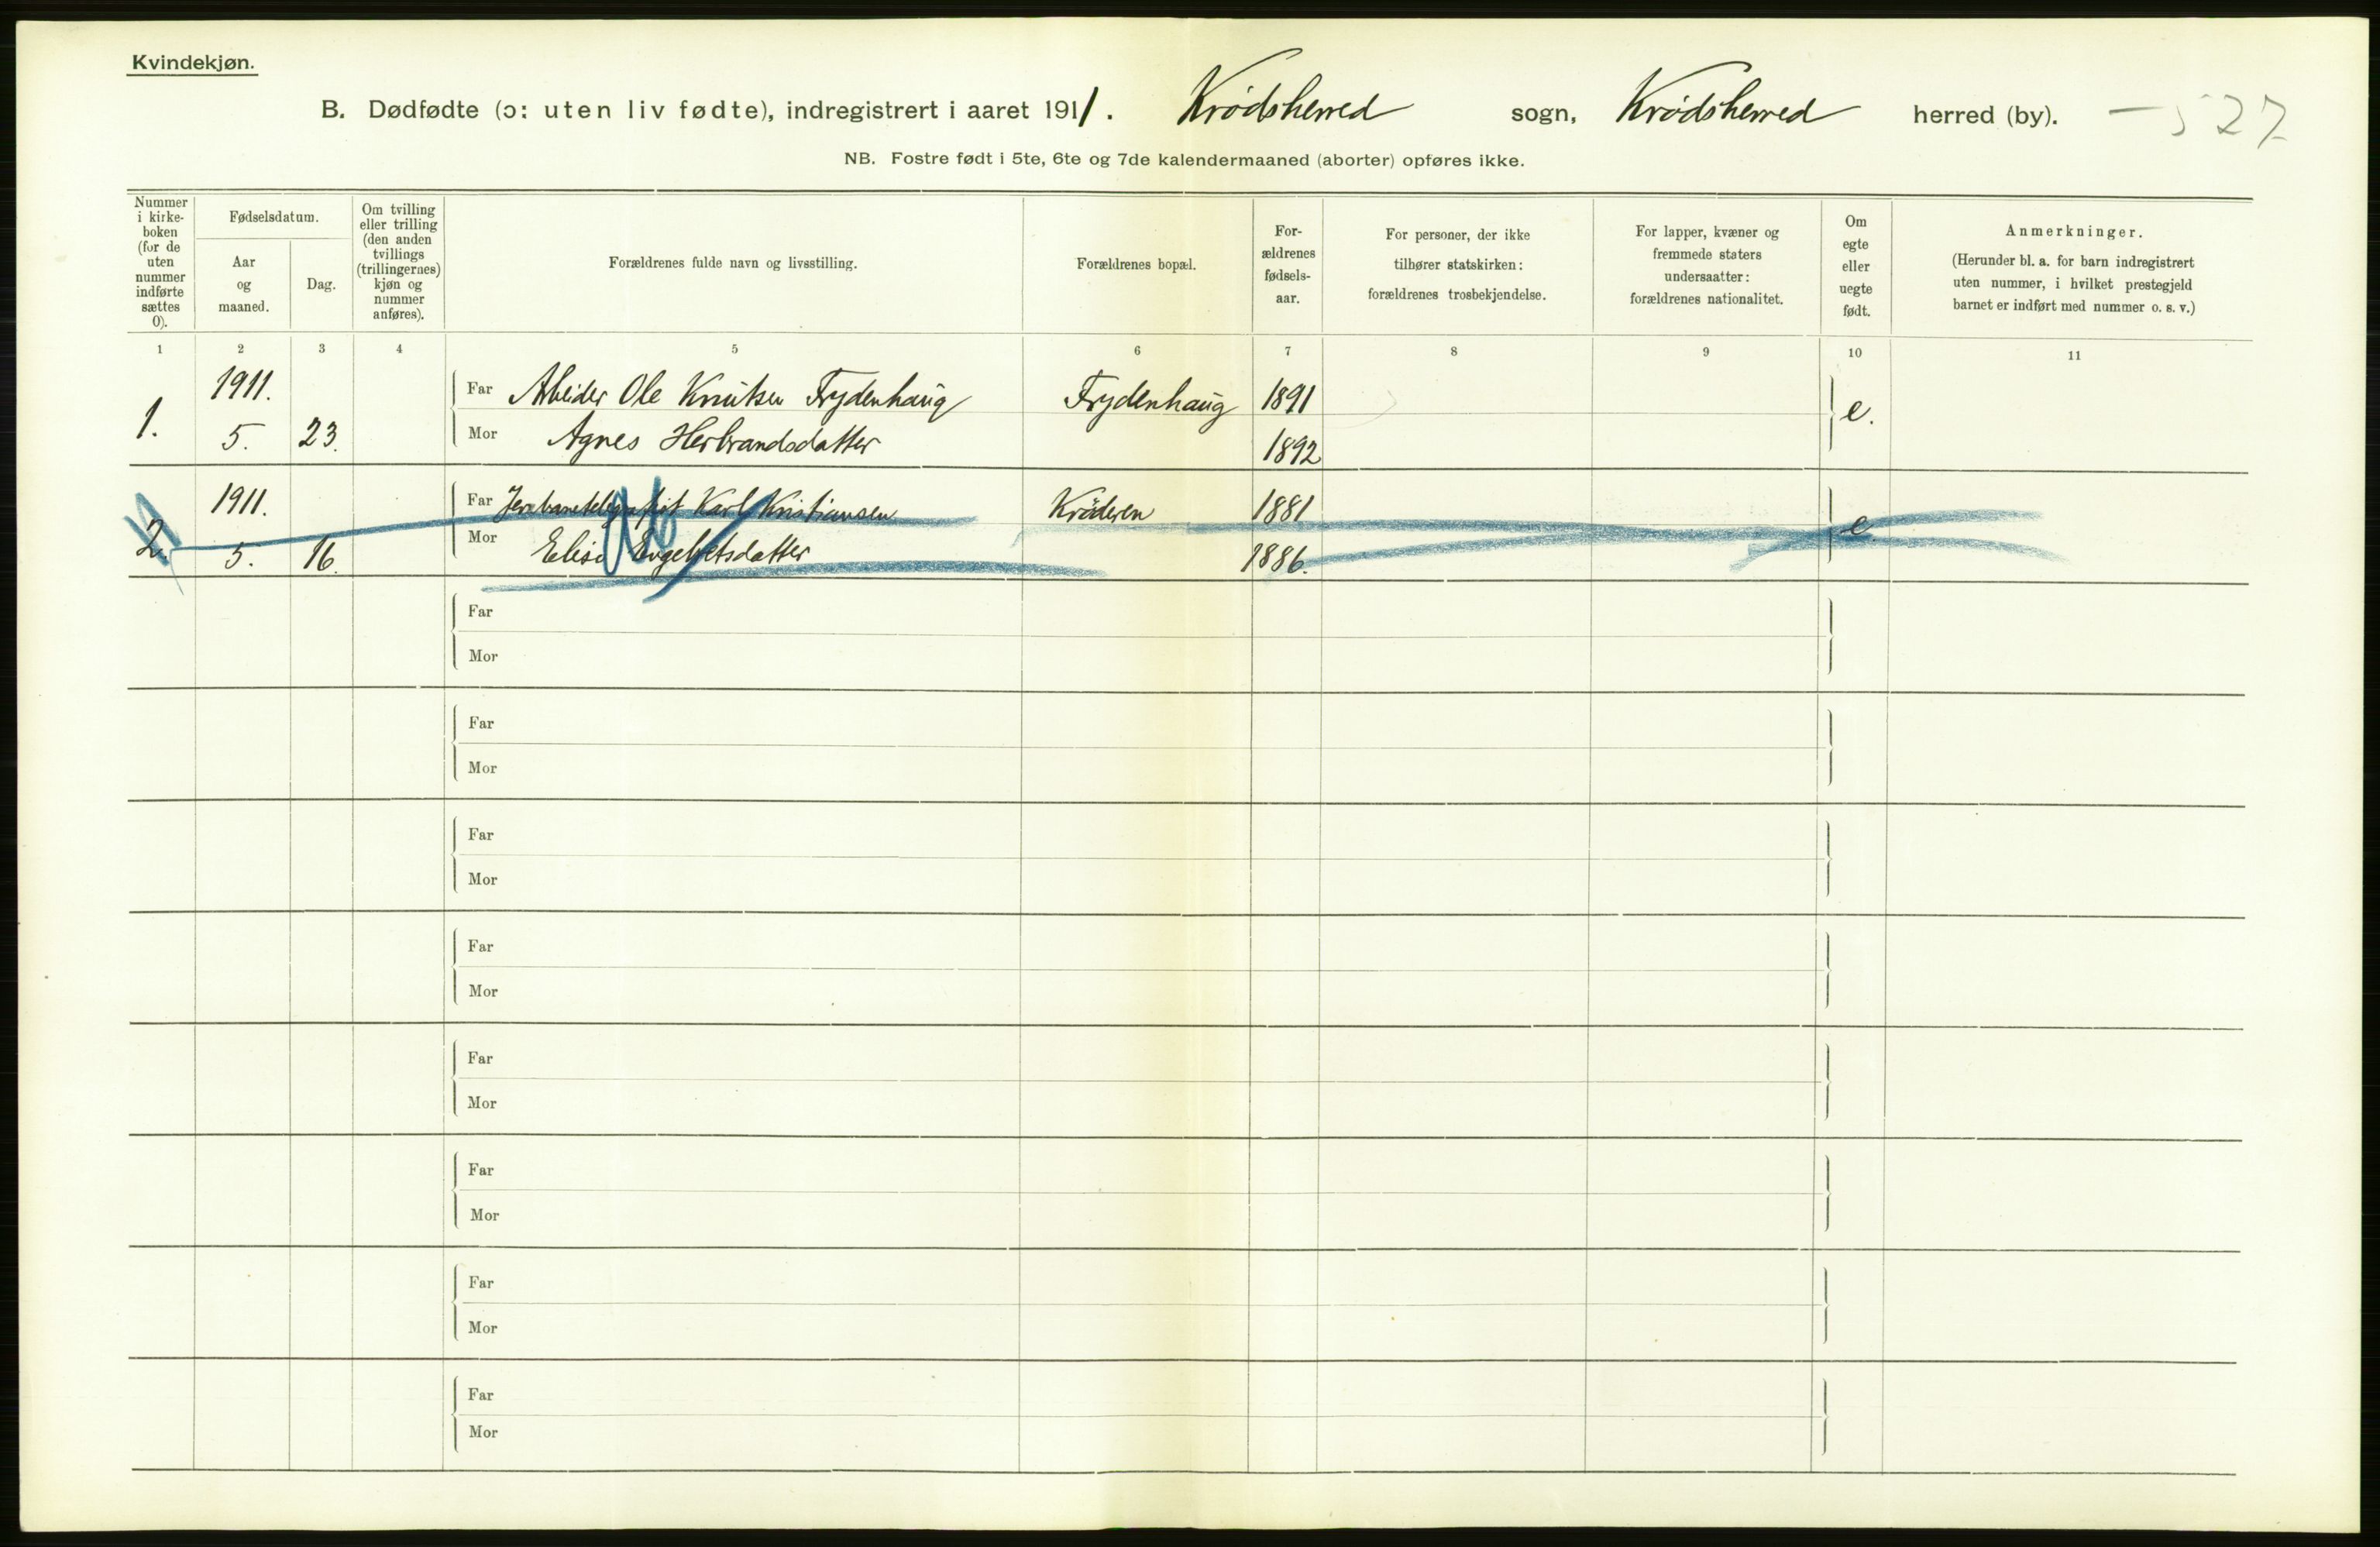 Kvindekjøn.
B. Dødfødte (ɔ: uten liv fødte), indregistrert i aaret 1911. Krødsherred sogn, Krødsherred herred (by). – 527
NB. Fostre født i 5te, 6te og 7de kalendermaaned (aborter) opføres ikke.
Nummer
i kirke-
boken
(for de
uten
nummer
indførte
sættes
0).
Fødselsdatum.
Aar
og
maaned.
Dag.
Om tvilling
eller trilling
(den anden
tvillings
(trillingernes)
kjøn og
nummer
anføres).
Forældrenes fulde navn og livsstilling.
Forældrenes bopæl.
For-
ældrenes
fødsels-
aar.
For personer, der ikke
tilhører statskirken:
forældrenes trosbekjendelse.
For lapper, kvæner og
fremmede staters
undersaatter:
forældrenes nationalitet.
Om
egte
eller
uegte
født.
Anmerkninger.
(Herunder bl. a. for barn indregistrert
uten nummer, i hvilket prestegjeld
barnet er indført med nummer o. s. v.)
1 2 3 4 5 6 7 8 9 10 11
1911. Far Arbeider Ole Knutsen Frydenhaug Frydenhaug 1891
1. 5. 23. Mor Agnes Herbrandsdatter 1892 e.
1911. Far Jernbanetelegrafist Karl Kristiansen Krøderen 1881
2. 5. 16. Mor Elise Engebretsdatter 1886. e.
Far
Mor
Far
Mor
Far
Mor
Far
Mor
Far
Mor
Far
Mor
Far
Mor
Far
Mor